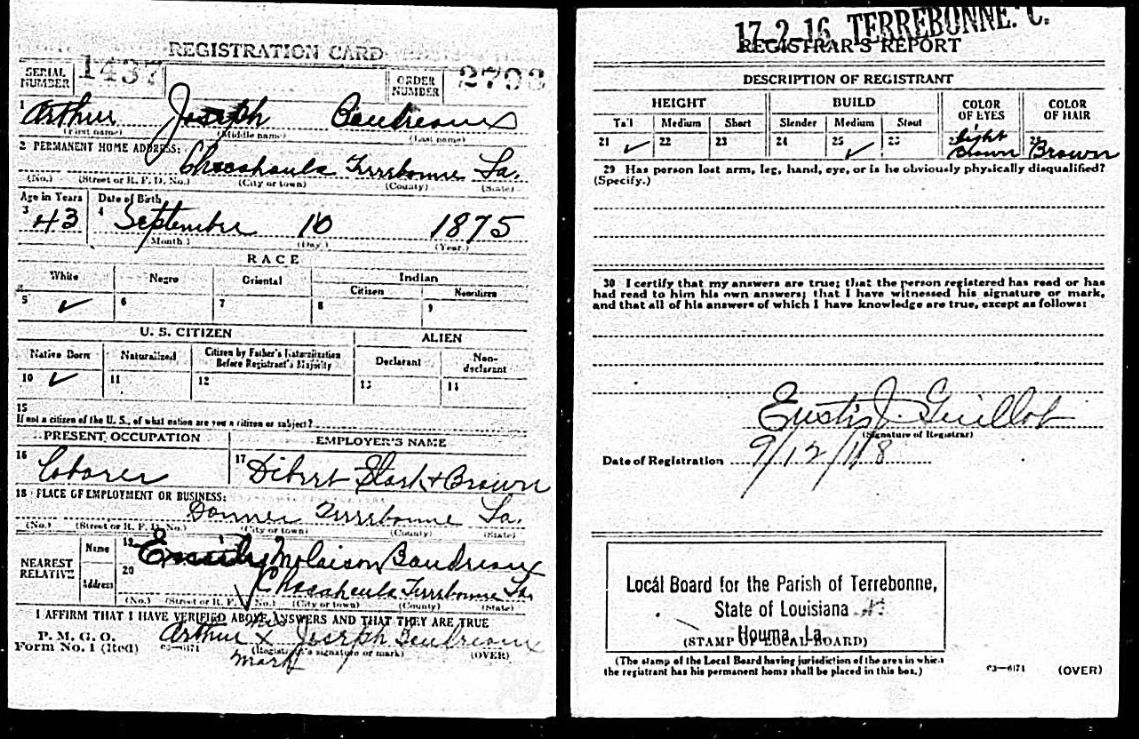 REGISTRATION CARD
SERIAL NUMBER 1437 ORDER NUMBER
1 Arthur Joseph Boudreaux
(First name) (Middle name) (Last name)
2 PERMANENT HOME ADDRESS:
Chacahoula Terrebonne La.
(No.) (Street or R. F. D. No.) (City or town) (County) (State)
Age in Years Date of Birth
3 43 4 September 10 1875
(Month) (Day) (Year)
RACE
White Negro Oriental Indian
Citizen Noncitizen
5 ✓ 6 7 8 9
U. S. CITIZEN ALIEN
Native Born Naturalized Citizen by Father's Naturalization Before Registrant's Majority Declarant Non-declarant
10 ✓ 11 12 13 14
15
If not a citizen of the U. S., of what nation are you a citizen or subject?
PRESENT OCCUPATION EMPLOYER'S NAME
16 Laborer 17 Dibert Stark & Brown
18 PLACE OF EMPLOYMENT OR BUSINESS:
Donner Terrebonne La.
(No.) (Street or R. F. D. No.) (City or town) (County) (State)
NEAREST RELATIVE
Name 19 Molaison Boudreaux
Address 20 Chacahoula Terrebonne La.
(No.) (Street or R. F. D. No.) (City or town) (County) (State)
I AFFIRM THAT I HAVE VERIFIED ABOVE ANSWERS AND THAT THEY ARE TRUE
P. M. G. O.
Form No. 1 (Red) 03—6171
his
Arthur X Joseph Boudreaux
mark
(Registrant's signature or mark) (OVER)
17-2-16 TERREBONNE. C.
REGISTRAR'S REPORT
DESCRIPTION OF REGISTRANT
HEIGHT BUILD COLOR OF EYES COLOR OF HAIR
Tall Medium Short Slender Medium Stout
21 ✓ 22 23 24 25 ✓ 26 light Brown Brown
29 Has person lost arm, leg, hand, eye, or is he obviously physically disqualified?
(Specify.)
30 I certify that my answers are true; that the person registered has read or has
had read to him his own answers; that I have witnessed his signature or mark,
and that all of his answers of which I have knowledge are true, except as follows:
Eustis J. Guillot
(Signature of Registrar)
Date of Registration 9/12/18
Local Board for the Parish of Terrebonne,
State of Louisiana
Houma, La
(STAMP OF LOCAL BOARD)
(The stamp of the Local Board having jurisdiction of the area in which
the registrant has his permanent home shall be placed in this box.)
03—6171 (OVER)